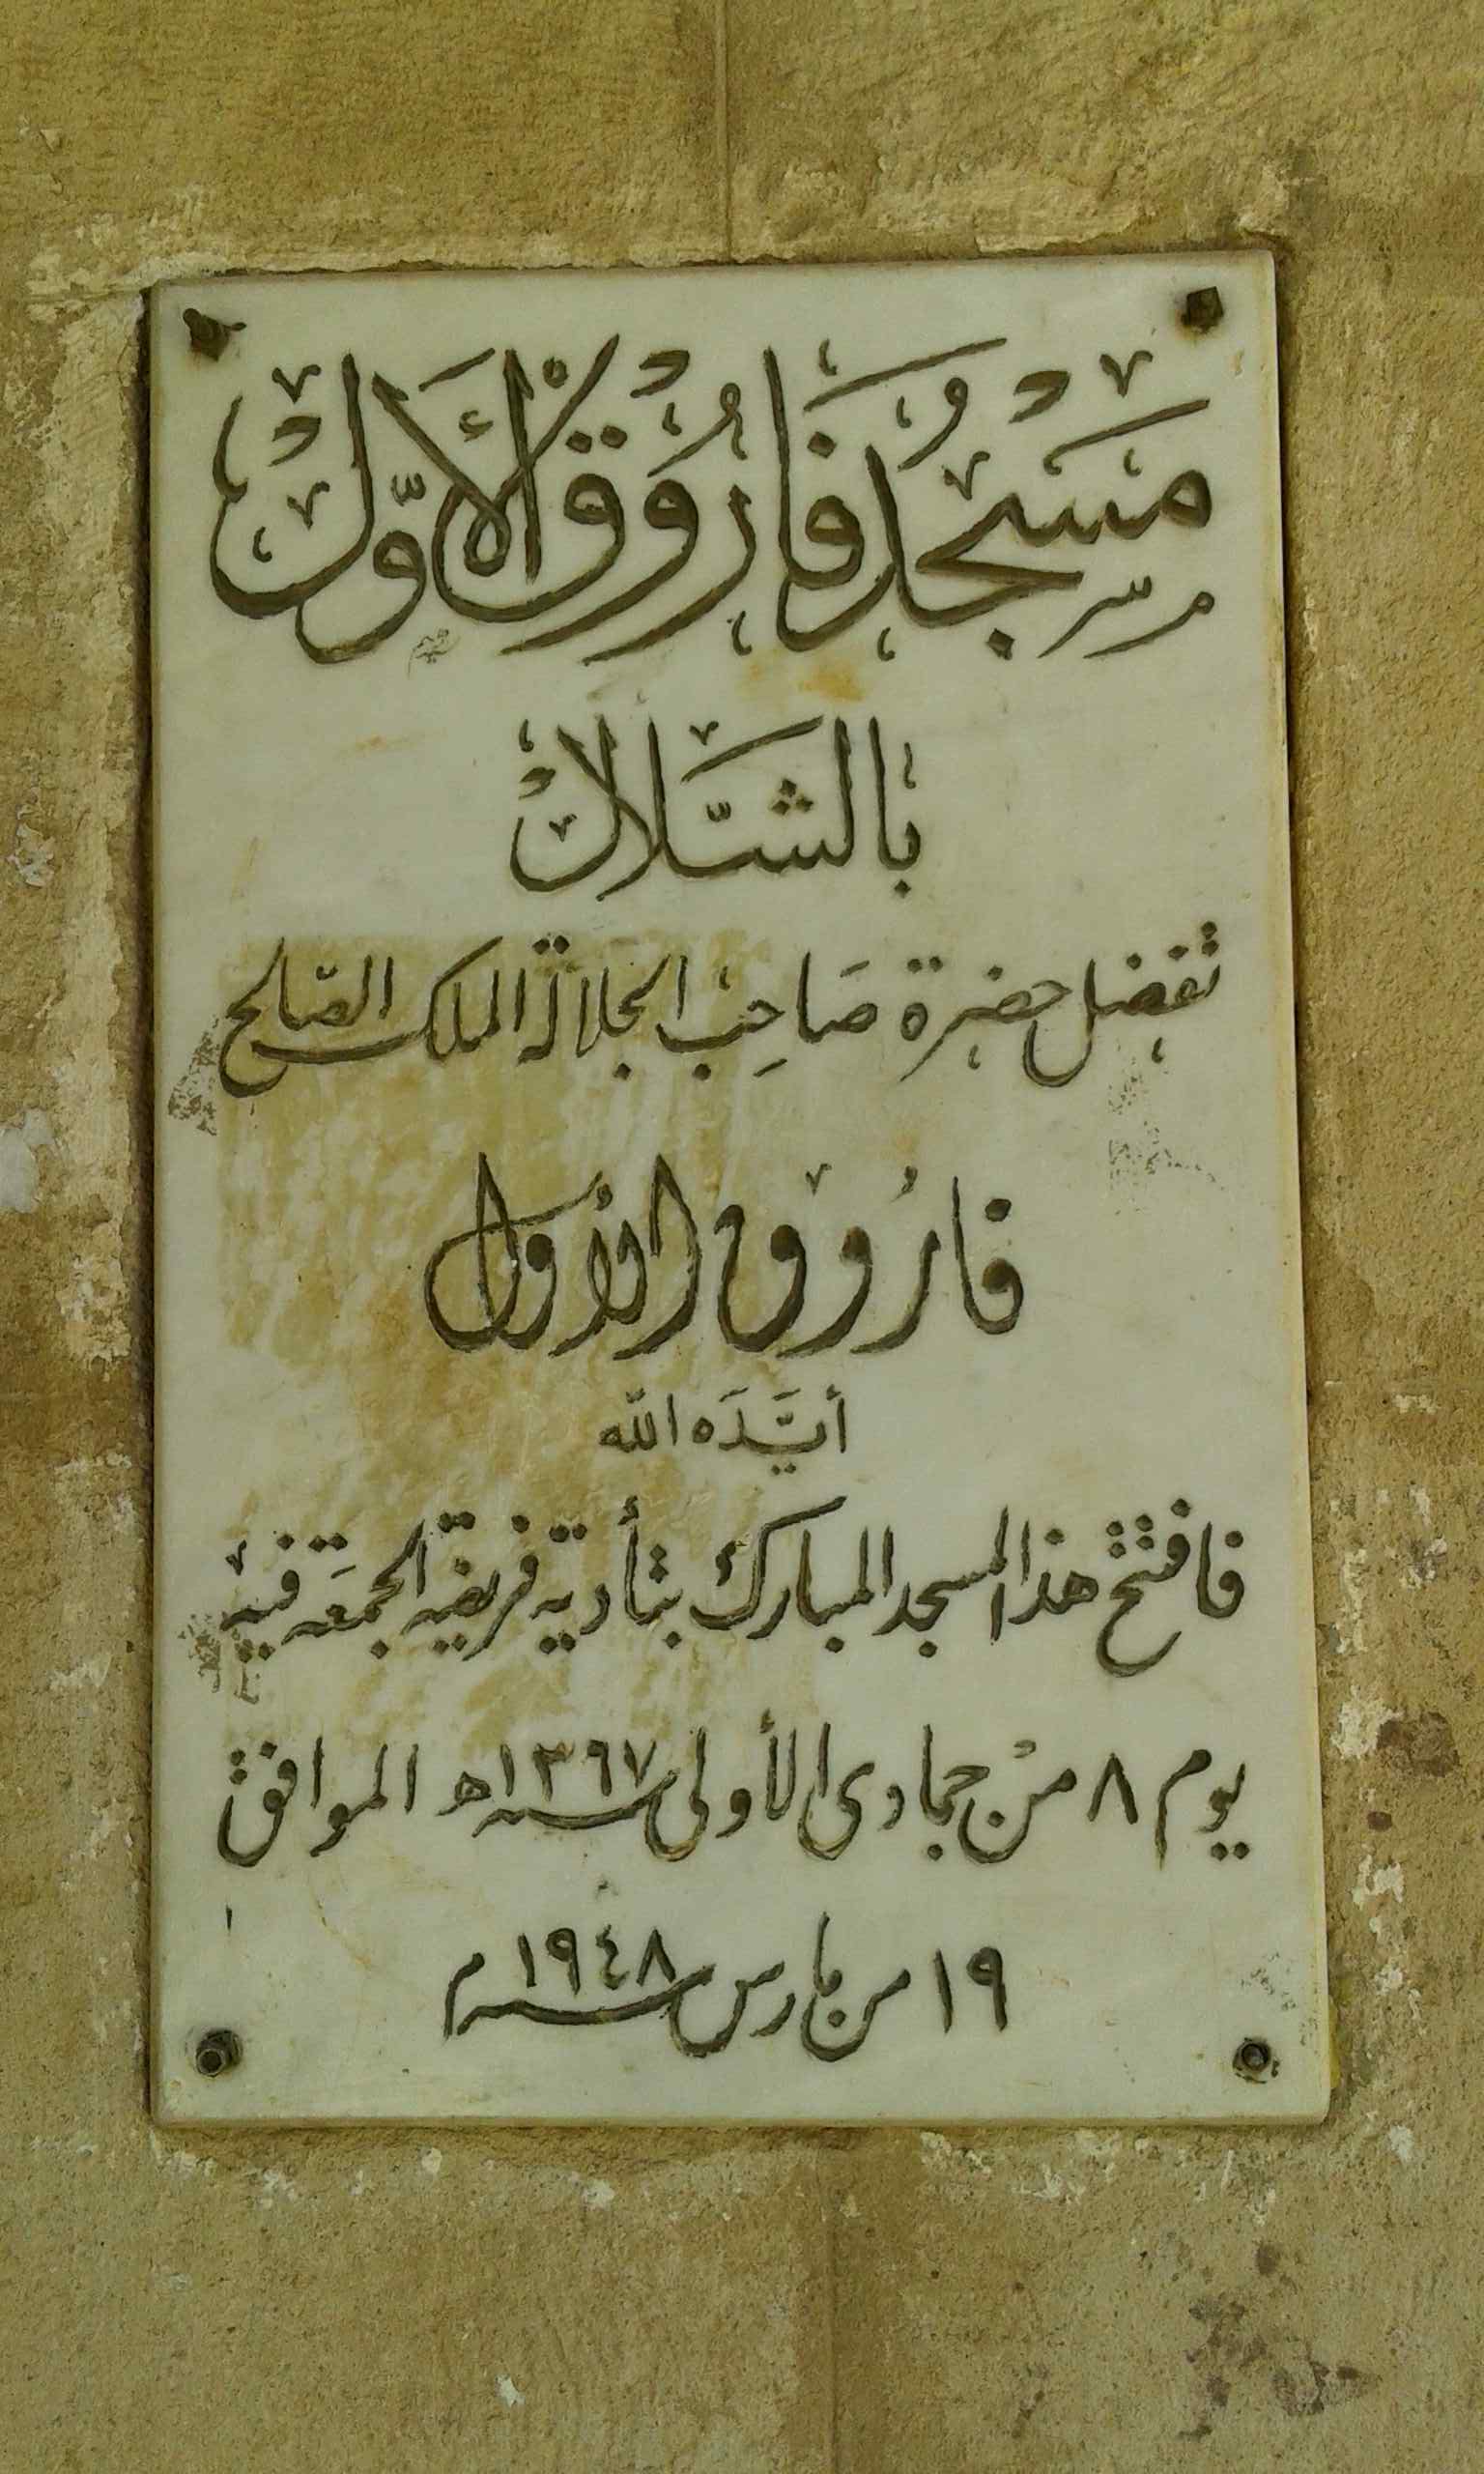 مَسْجِدُ فَارُوقْ الْأَوَّلْ
بالشَّلالْ
تفضل حضرة صَاحِب الجلالة الملك الصّالح
فارُوق الأول
أيَّدَه الله
فافتتح هذا المسجد المبارك بتأدية فريضة الجمعَة فيه
يوم ٨ منْ جمادى الأولى سنة ١٣٦٧ هـ الموافق
١٩ من مارس سنة ١٩٤٨ م